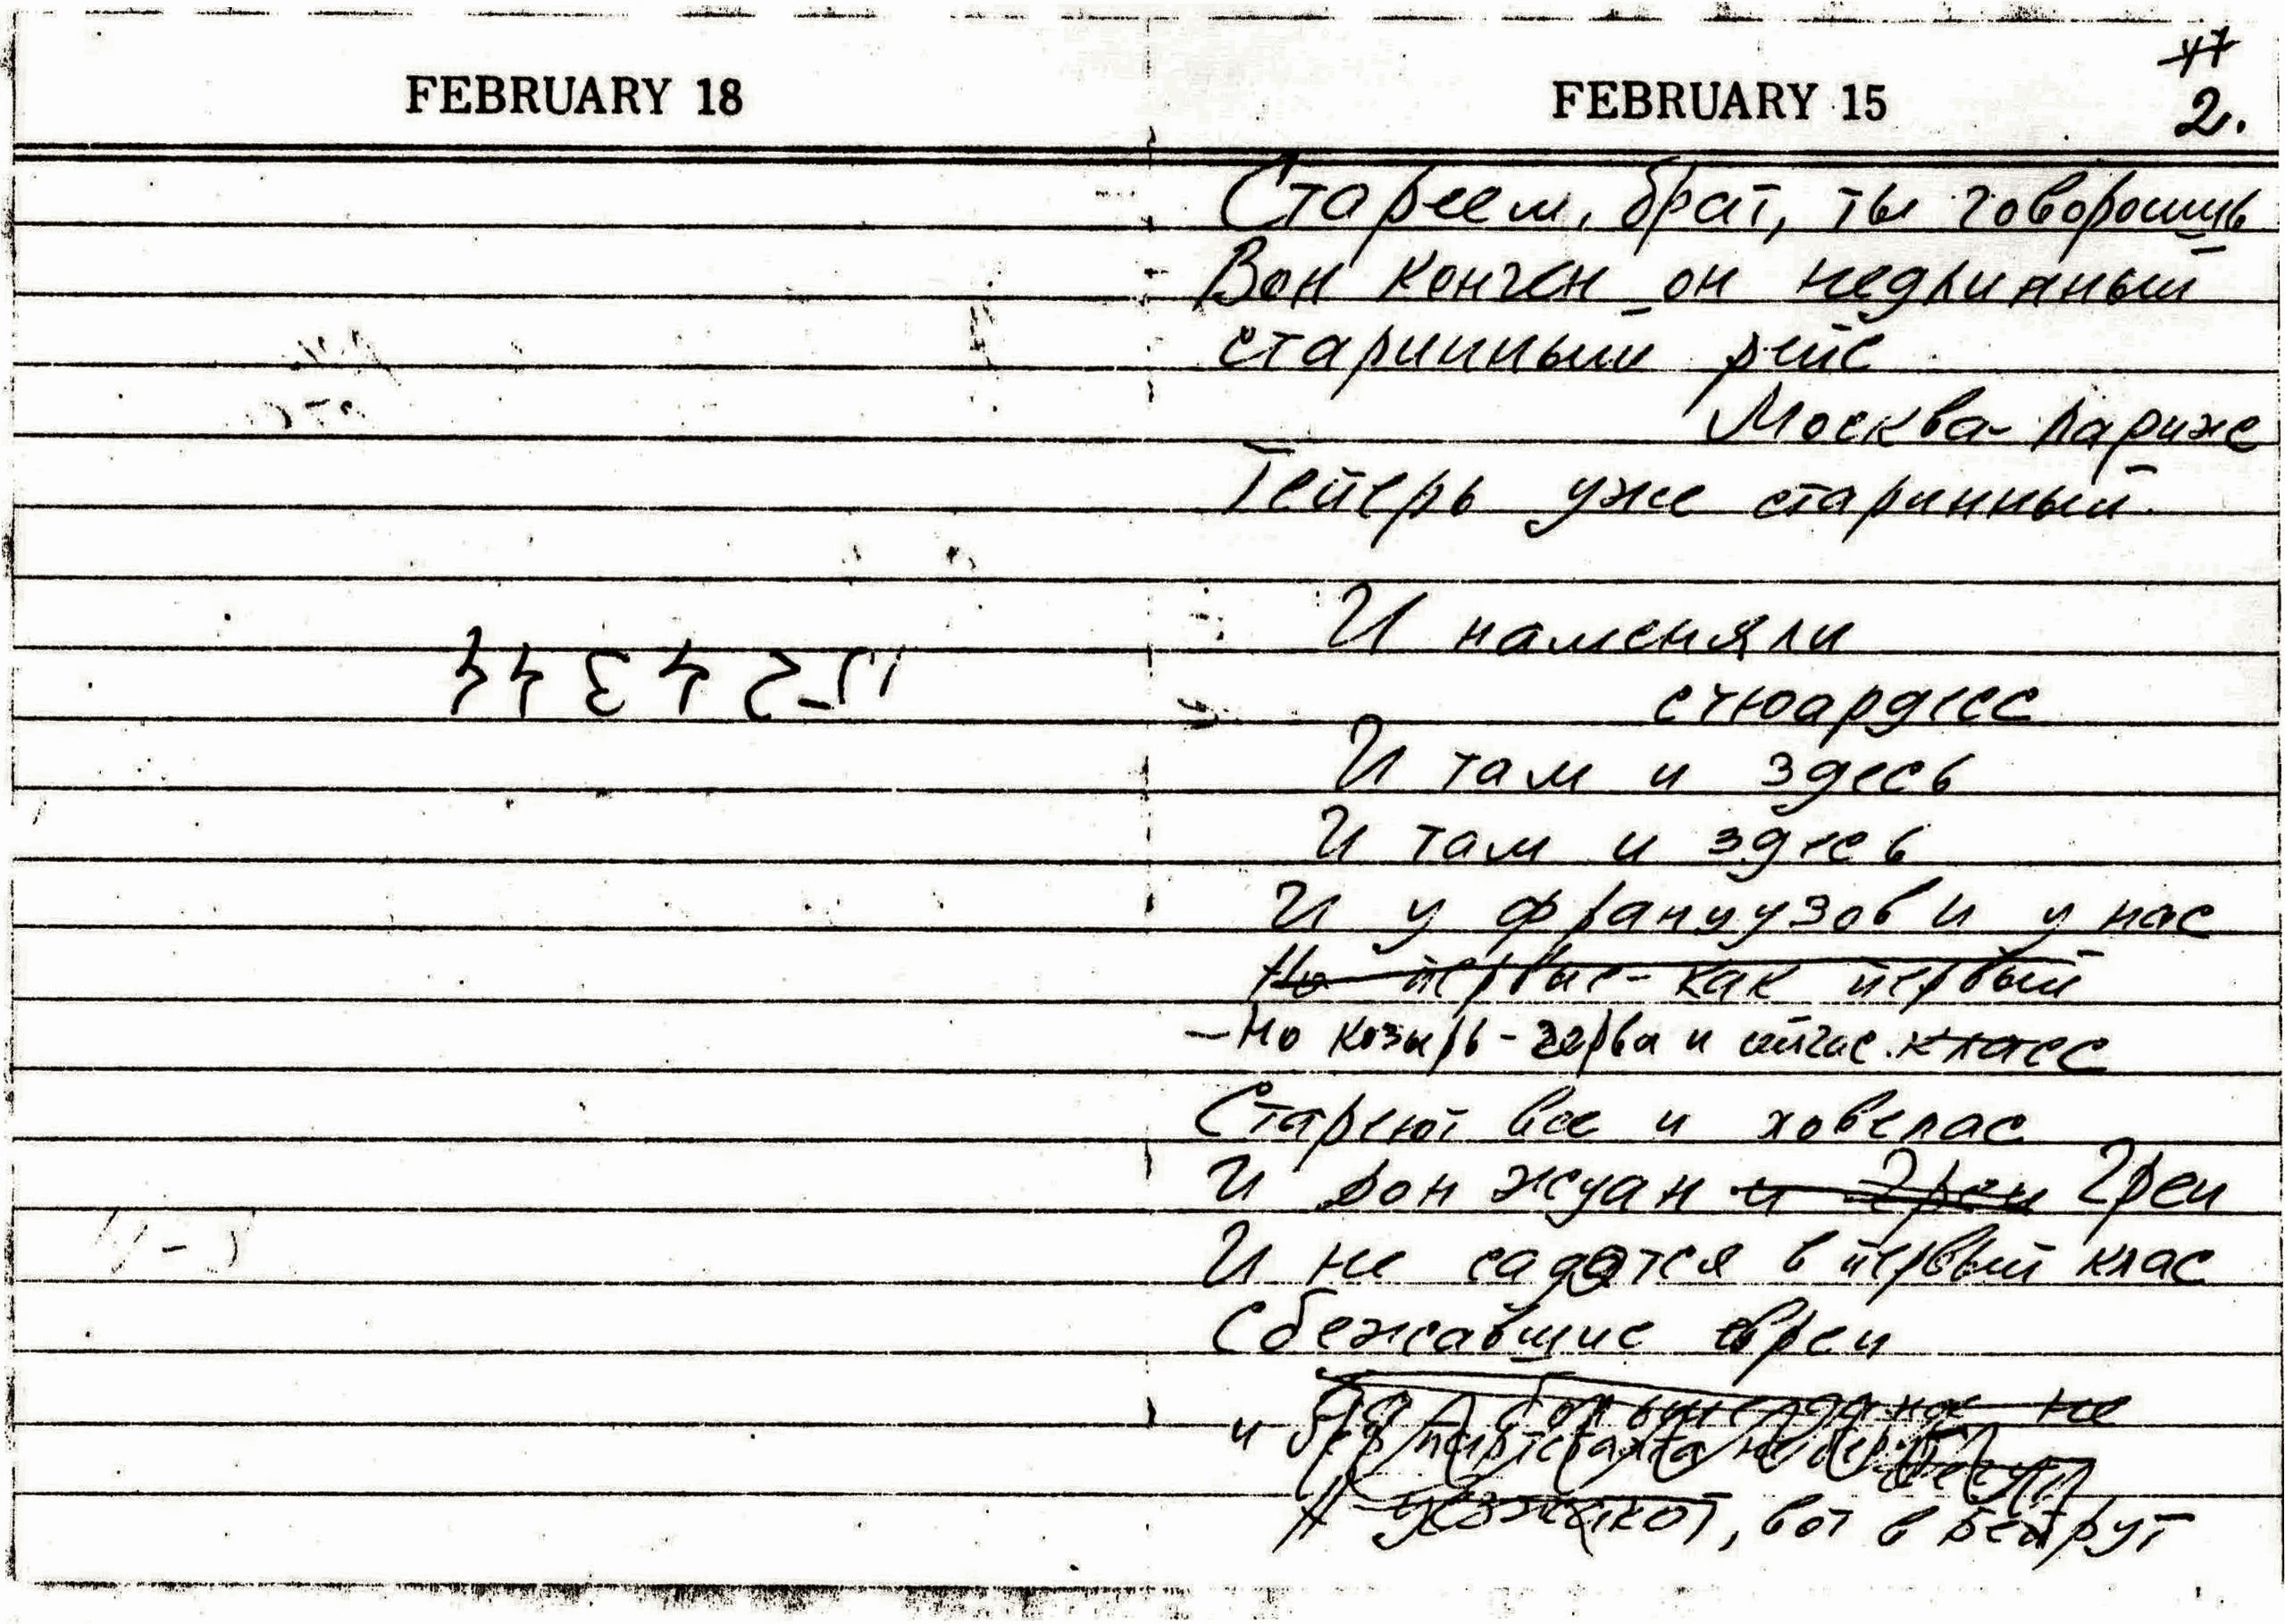 FEBRUARY 18
FEBRUARY 15
47
2.
Стареем, брат, ты говоришь
Вон кончен он недлинный
старинный рейс
Москва-Париже
Теперь уже старинный.
И наменяли
стюардесс
И там и здесь
И там и здесь
И у французов и у нас
Но первые- как первый
– Но козырь-черва и сейчас класс
Стареют все и ловелас
И Дон жуан и Греи Греи
И не садятся в первый клас
Сбежавшие евреи
и без
И уезжают, вот в Бейрут